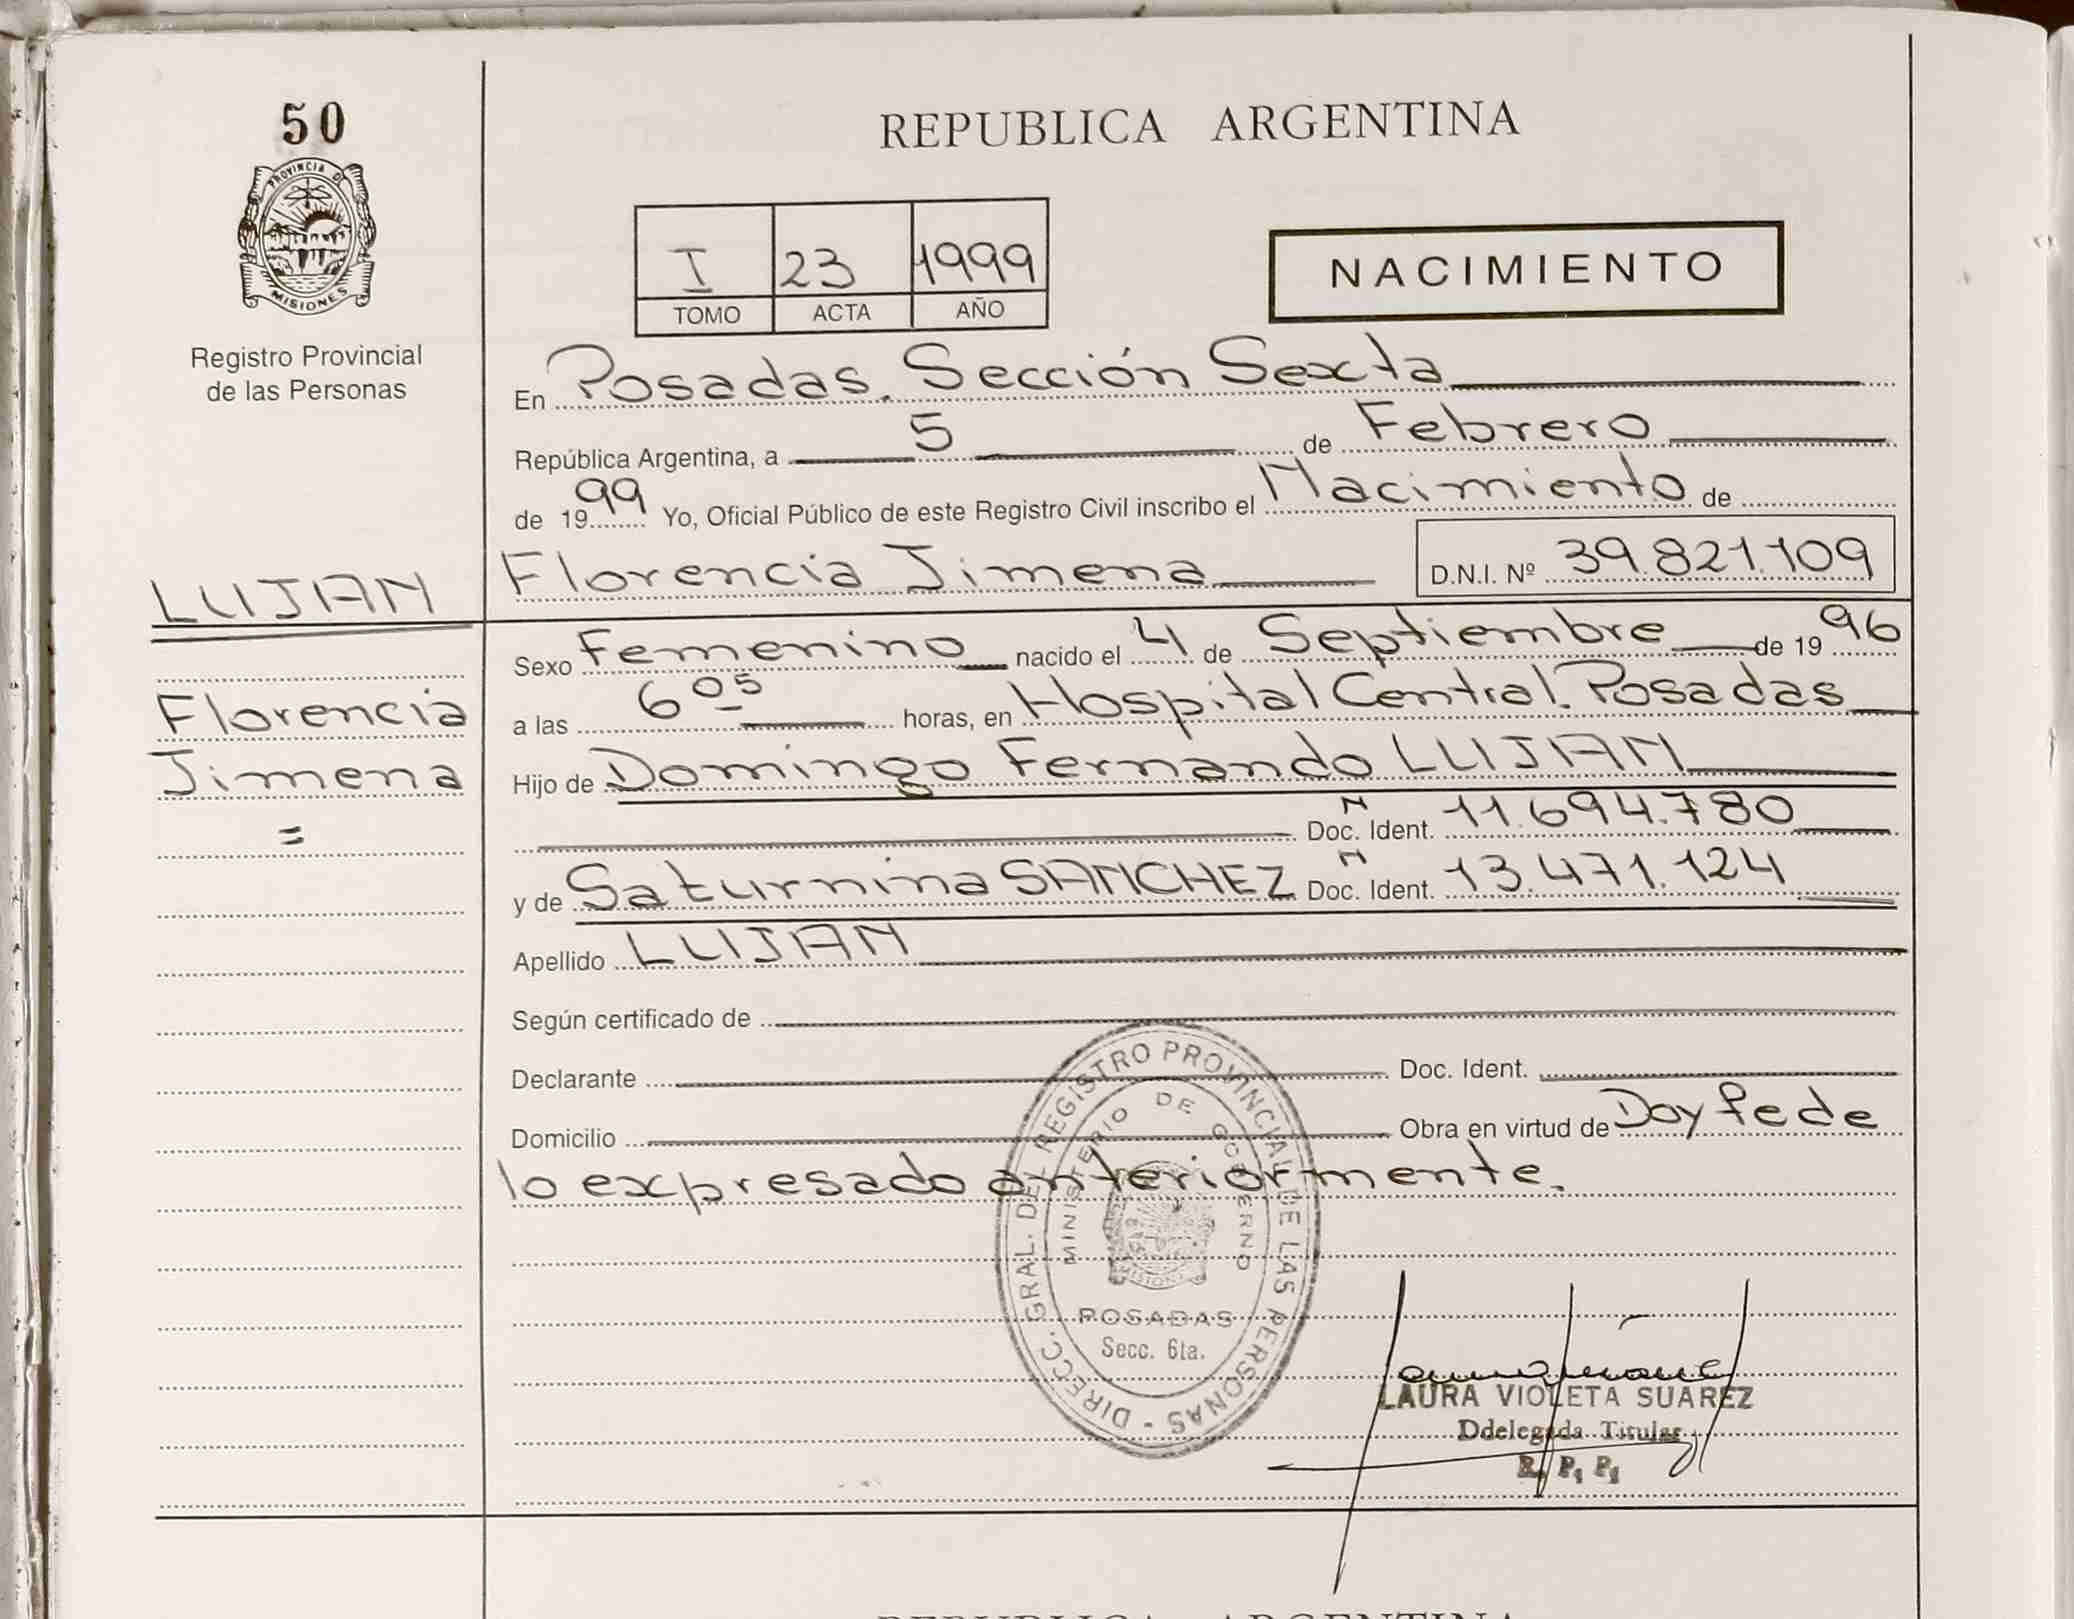 50
PROVINCIA DE
MISIONES
Registro Provincial
de las Personas
REPUBLICA ARGENTINA
I 23 1999
TOMO ACTA AÑO
NACIMIENTO
En Posadas. Sección Sexta
República Argentina, a 5 de Febrero
de 1999 Yo, Oficial Público de este Registro Civil inscribo el Nacimiento de
LUJAN Florencia Jimena D.N.I. Nº 39.821.109
Sexo Femenino nacido el 4 de Septiembre de 1996
Florencia a las 6 05 horas, en Hospital Central. Posadas
Jimena Hijo de Domingo Fernando LUJAN
= Doc. Ident. M 11.694.780
y de Saturnina SANCHEZ Doc. Ident. M 13.471.124
Apellido LUJAN
Según certificado de
Declarante Doc. Ident.
Domicilio Obra en virtud de Doy fe de
lo expresado anteriormente.
DIRECC. GRAL. DEL REGISTRO PROVINCIAL DE LAS PERSONAS -
MINISTERIO DE GOBIERNO
MISIONES
POSADAS
Secc. 6ta.
LAURA VIOLETA SUAREZ
Ddelegada Titular
R. P. P.
REPUBLICA ARGENTINA